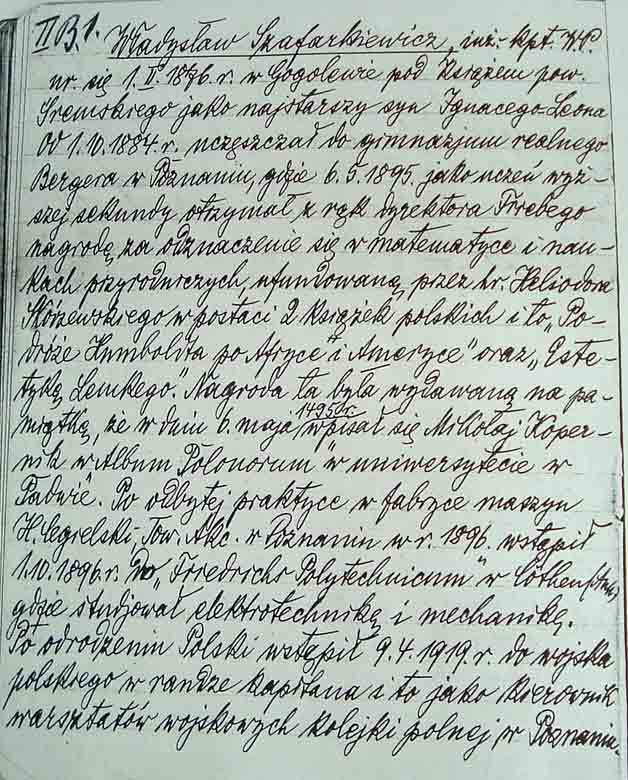 II B.1. Władysław Szafarkiewicz, inż. kpt. W.P.
ur. się 1.II.1876.r. w Gogolewie pod Książem pow.
Śremskiego jako najstarszy syn Ignacego-Leona
Od 1.10.1884.r. uczęszczał do gimnazjum realnego
Bergera w Poznaniu, gdzie 6.5.1895. jako uczeń wyż-
szej sekundy otrzymał z rąk dyrektora Friebego
nagrodę za odznaczenie się w matematyce i nau-
kach przyrodniczych, ufundowaną przez hr. Heliodora
Skórzewskiego w postaci 2 książek polskich i to „Po-
dróże Humboldta po Afryce i Ameryce" oraz „Este-
tykę Lemkego". Nagroda ta była wydawaną na pa-
miątkę, że w dniu 6. maja wpisał się Mikołaj Koper-
nik w „Album Polonorum" w uniwersytecie w
Padwie. Po odbytej praktyce w fabryce maszyn
H. Cegielski, Tow. Akc. w Poznaniu w r. 1896. wstąpił
1.10.1896.r. do „Friedrichs Polytechnicum" w Cöthen
gdzie studjował elektrotechnikę i mechanikę.
Po odrodzeniu Polski wstąpił 9.4.1919.r. do wojska
polskiego w randze kapitana i to jako kierownik
warsztatów wojskowych kolejki polnej w Poznaniu.